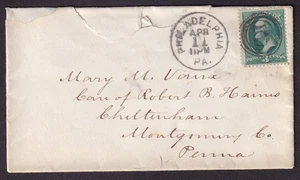 PHILADELPHIA
APR
11
11PM
PA.
Mary M. Vaux
Care of Robert B. Haines
Cheltenham
Montgomery Co.
Penna